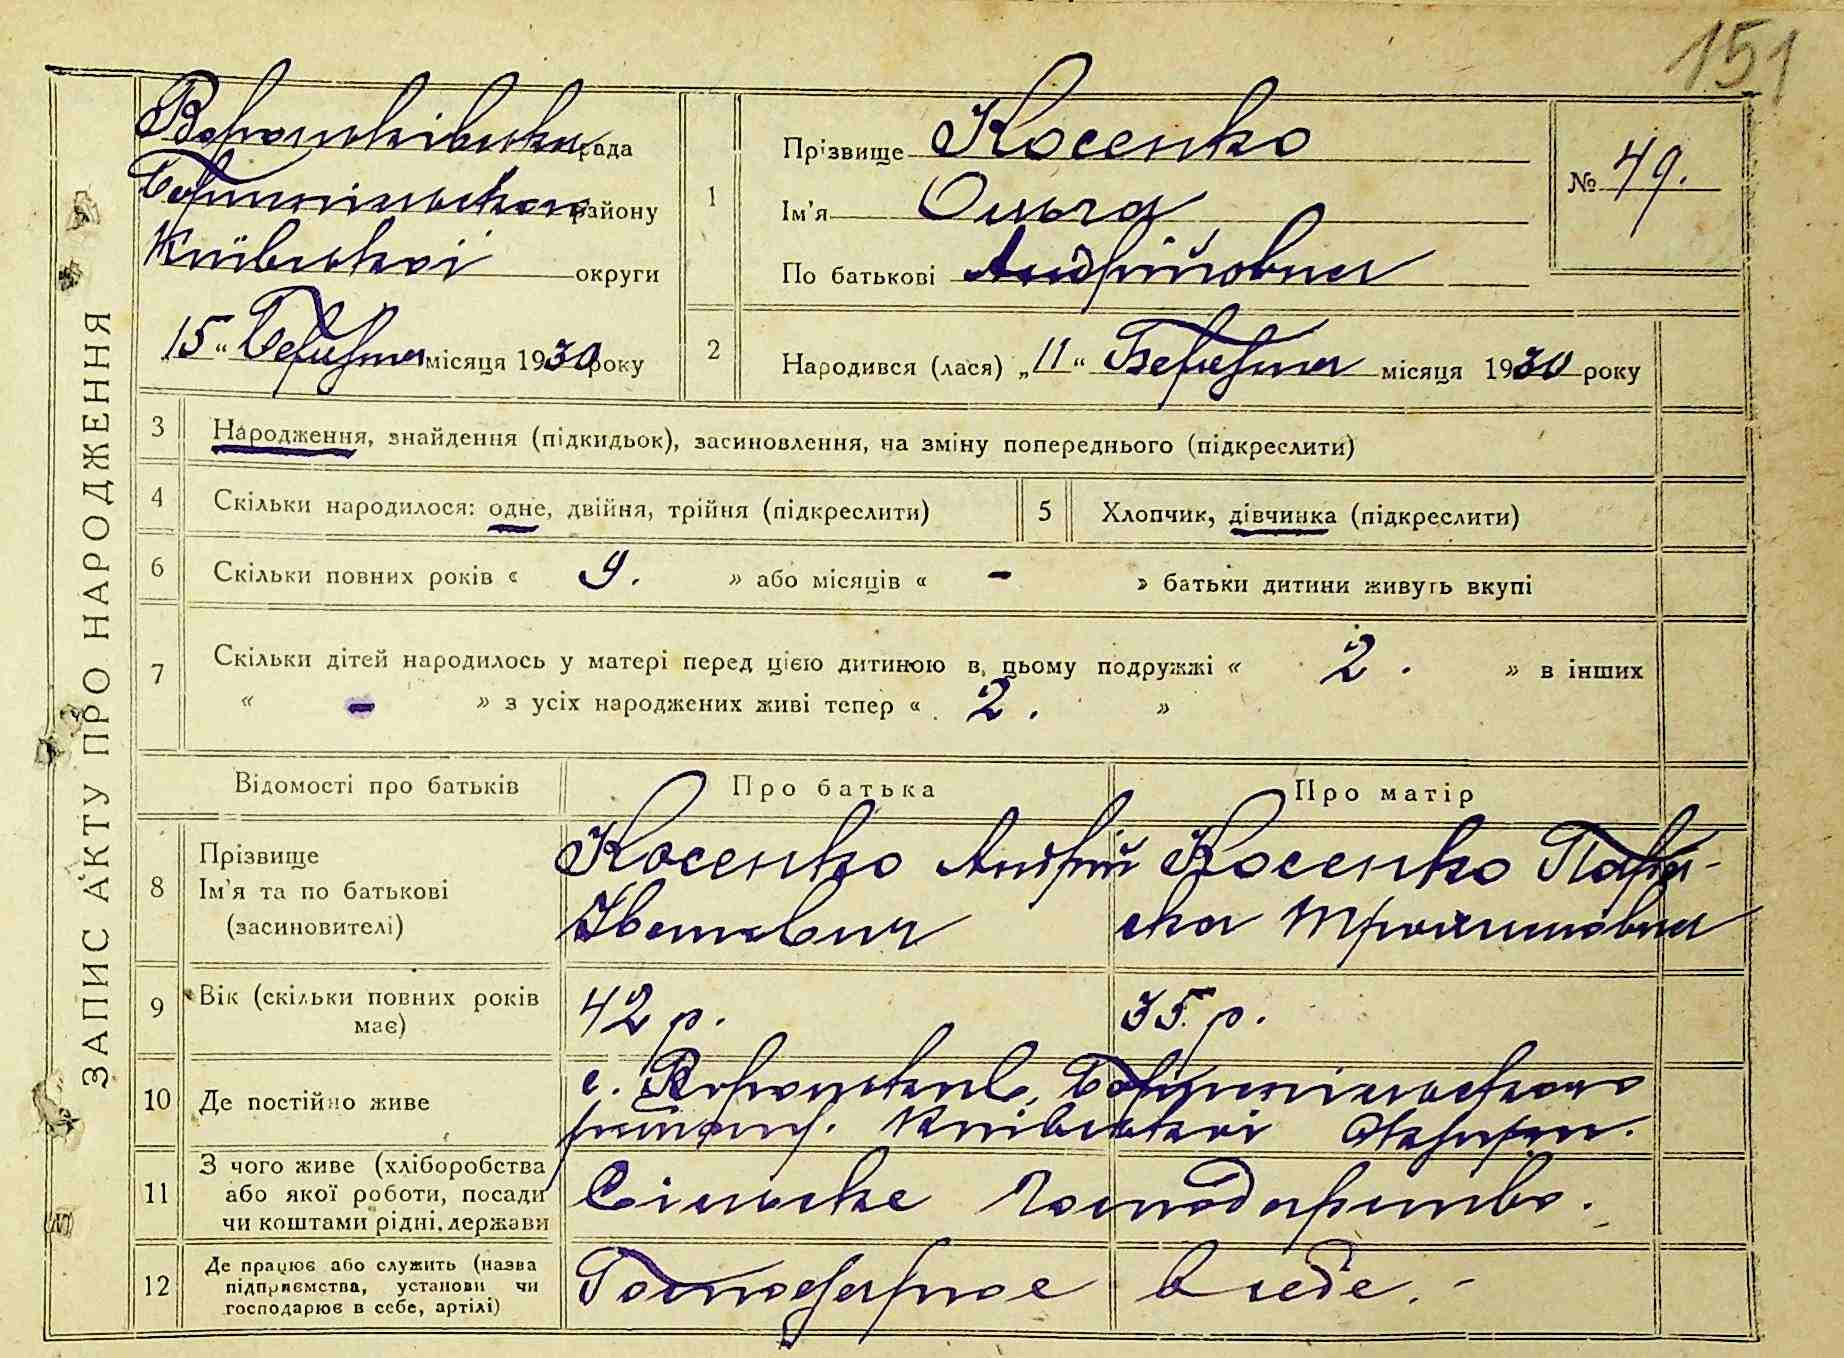 151
ЗАПИС АКТУ ПРО НАРОДЖЕННЯ
Вороньківська рада
Бориспільського району
Київської округи
15 „ Березня місяця 1930 року
1 Прізвище Косенко
Ім'я Ольга
По батькові Андрійовна
№ 49.
2 Народився (лася) „11“ Березня місяця 1930 року
3 Народження, знайдення (підкидьок), засиновлення, на зміну попереднього (підкреслити)
4 Скільки народилося: одне, двійня, трійня (підкреслити) 5 Хлопчик, дівчинка (підкреслити)
6 Скільки повних років « 9. » або місяців « - » батьки дитини живуть вкупі
7 Скільки дітей народилось у матері перед цією дитиною в цьому подружжі « 2. » в інших
« - » з усіх народжених живі тепер « 2. »
Відомості про батьків Про батька Про матір
8 Прізвище
Ім'я та по батькові
(засиновителі)
Косенко Андрій
Іванович
Косенко Парас-
ска
9 Вік (скільки повних років
має)
42 р. 35 р.
10 Де постійно живе
с. Вороньків, Бориспільського
району. Київської Округи.
11 З чого живе (хліборобства
або якої роботи, посади
чи коштами рідні, держави
Сільське господарство.
12 Де працює або служить (назва
підприємства, установи чи
господарює в себе, артілі)
Господарює в себе. -